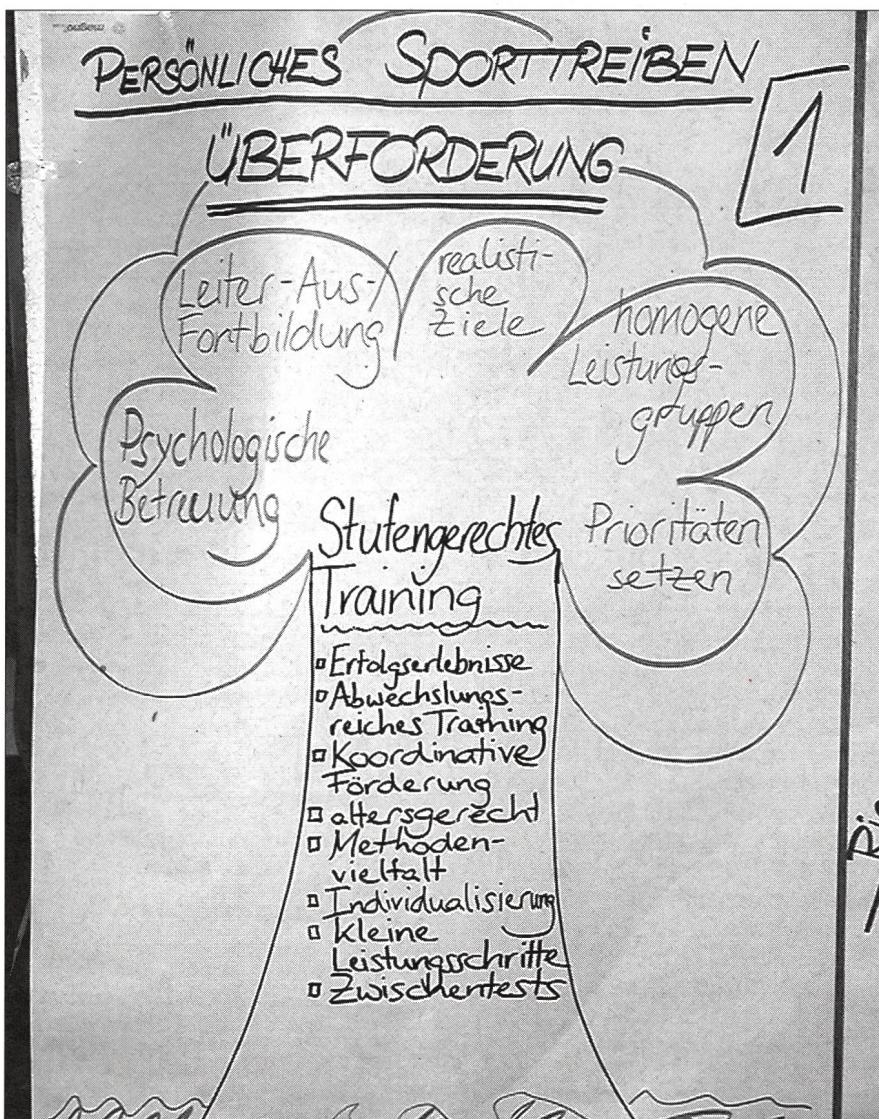 PERSÖNLICHES SPORTTREIBEN
1
ÜBERFORDERUNG
Leiter-Aus-/
Fortbildung
realisti-
sche
Ziele
homogene
Leistungs-
gruppen
Psychologische
Betreuung
Prioritäten
setzen
Stufengerechtes
Training
Erfolgserlebnisse
Abwechslungs-
reiches Training
Koordinative
Förderung
altersgerecht
Methoden-
vielfalt
Individualisierung
kleine
Leistungsschritte
Zwischentests